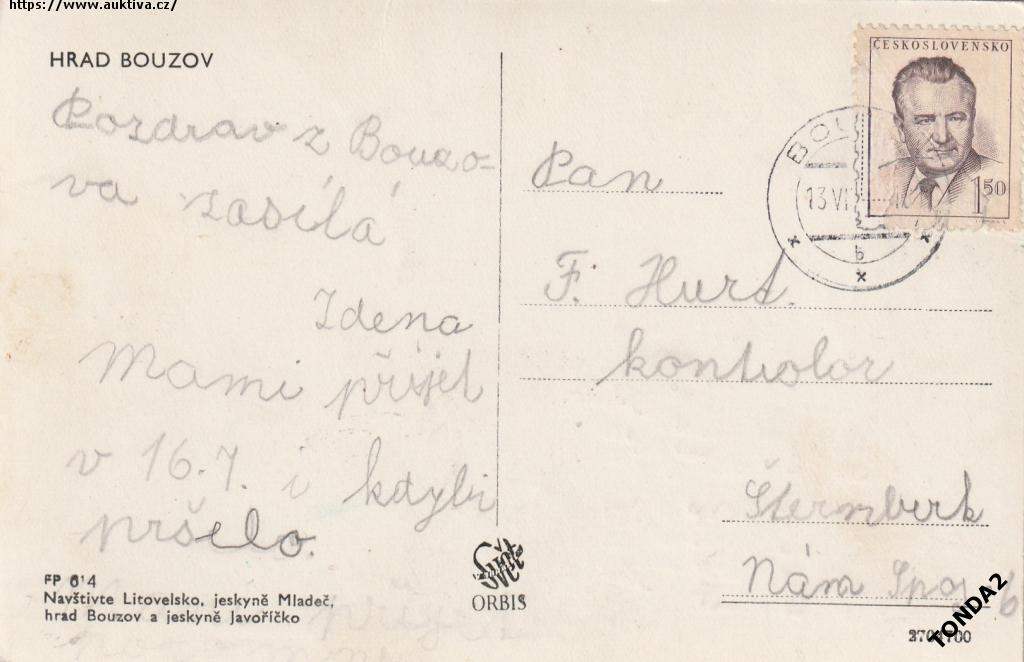 https://www.auktiva.cz/
HRAD BOUZOV
Pozdrav z Bouzo-
va zasílá
Zdena
Mami přijel
v 16.7. i kdybi
pršelo.
FP 614
Navštivte Litovelsko, jeskyně Mladeč,
hrad Bouzov a jeskyně Javoříčko
Svět
ORBIS
ČESKOSLOVENSKO
1 50
13 VI
b
Pan
F. Hurt.
kontrolor
Šternberk
Nám Spoj 6
TONDA2